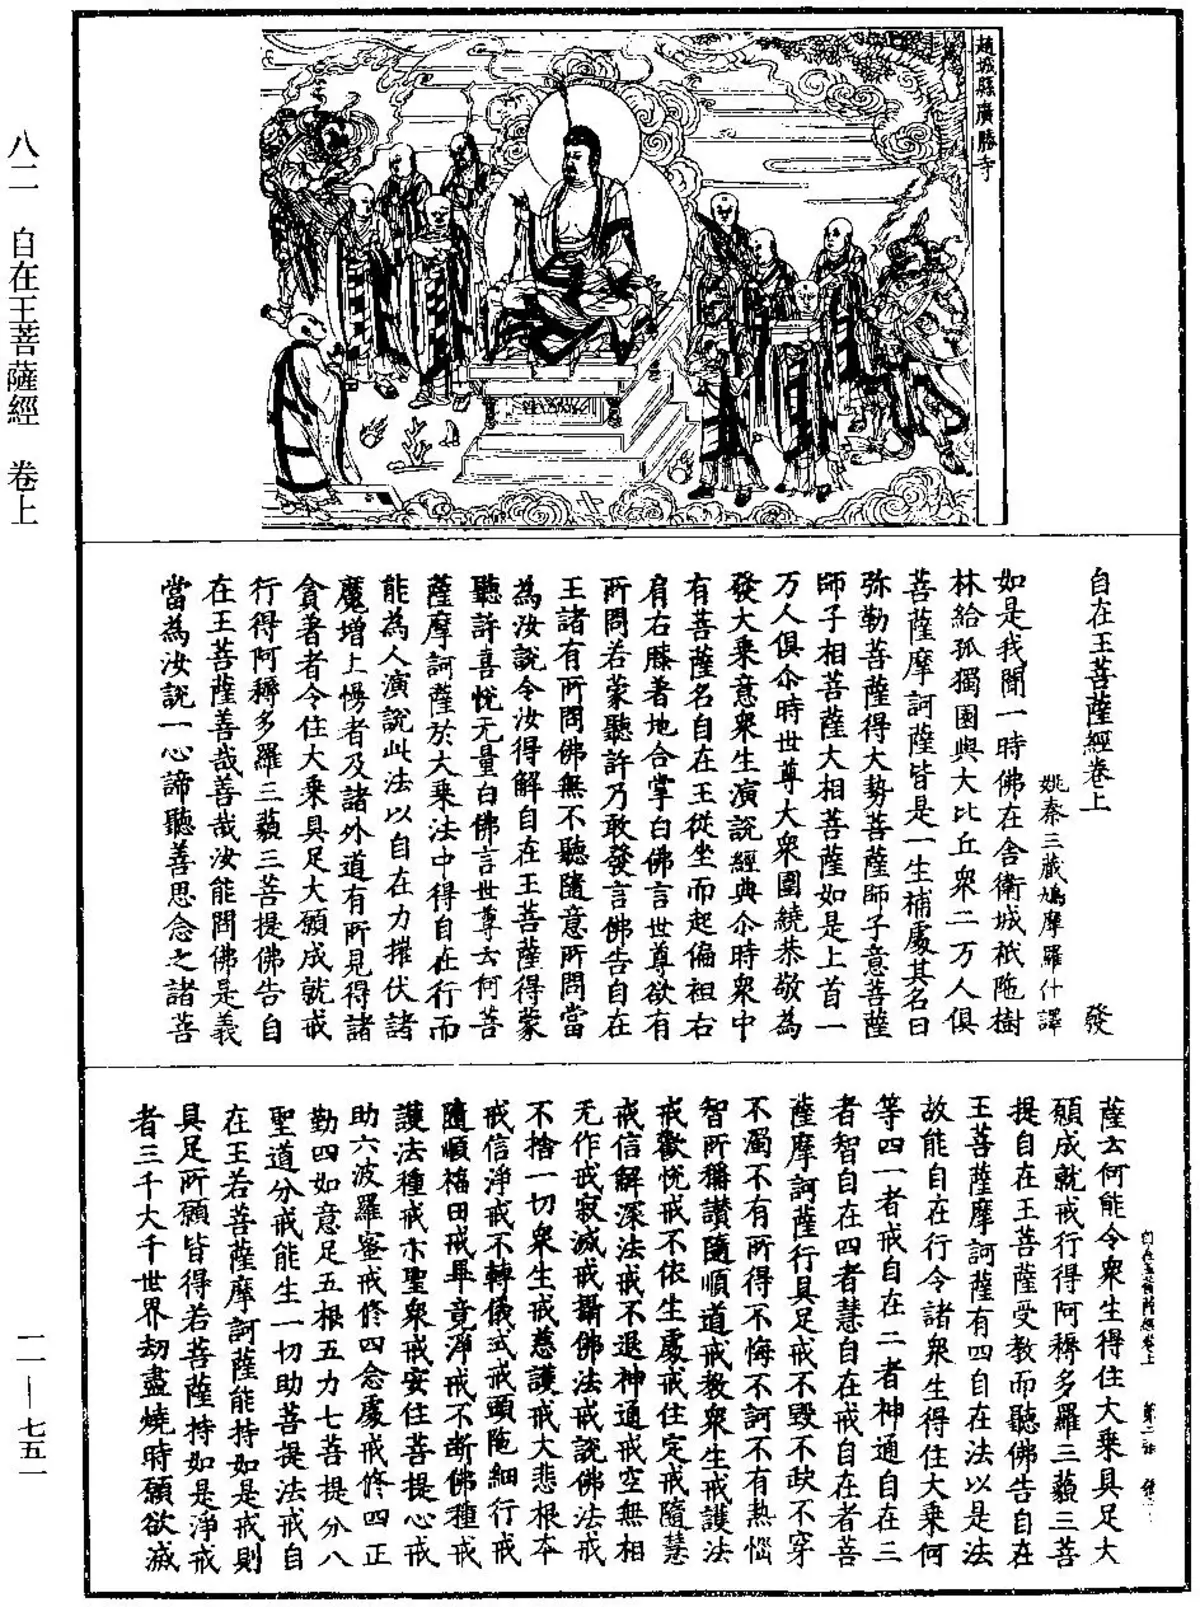 趙城縣廣勝寺
八二 自在王菩薩經 卷上
自在王菩薩經卷上 發
姚秦三藏鳩摩羅什譯
如是我聞一時佛在舍衛城祇陁樹
林給孤獨園與大比丘衆二万人俱
菩薩摩訶薩皆是一生補處其名曰
弥勒菩薩得大勢菩薩師子意菩薩
師子相菩薩大相菩薩如是上首一
万人俱尒時世尊大衆圍繞恭敬為
發大乘意衆生演說經典尒時衆中
有菩薩名自在王從坐而起偏袒右
肩右膝著地合掌白佛言世尊欲有
所問若蒙聽許乃敢發言佛告自在
王諸有所問佛無不聽隨意所問當
為汝說令汝得解自在王菩薩得蒙
聽許喜悅无量白佛言世尊云何菩
薩摩訶薩於大乘法中得自在行而
能為人演說此法以自在力摧伏諸
魔增上慢者及諸外道有所見得諸
貪著者令住大乘具足大願成就戒
行得阿耨多羅三藐三菩提佛告自
在王菩薩善哉善哉汝能問佛是義
當為汝說一心諦聽善思念之諸菩
薩云何能令衆生得住大乘具足大
願成就戒行得阿耨多羅三藐三菩
提自在王菩薩受教而聽佛告自在
王菩薩摩訶薩有四自在法以是法
故能自在行令諸衆生得住大乘何
等四一者戒自在二者神通自在三
者智自在四者慧自在戒自在者菩
薩摩訶薩行具足戒不毀不缺不穿
不濁不有所得不悔不訶不有熱惱
智所稱讚隨順道戒教衆生戒護法
戒歡悅戒不依生處戒住定戒隨慧
戒信解深法戒不退神通戒空無相
无作戒寂滅戒攝佛法戒說佛法戒
不捨一切衆生戒慈護戒大悲根本
戒信淨戒不轉儀式戒頭陁細行戒
隨順福田戒畢竟淨戒不斷佛種戒
護法種戒示聖衆戒安住菩提心戒
助六波羅蜜戒修四念處戒修四正
勤四如意足五根五力七菩提分八
聖道分戒能生一切助菩提法戒自
在王若菩薩摩訶薩能持如是戒則
具足所願皆得若菩薩持如是淨戒
者三千大千世界劫盡燒時願欲滅
自在王菩薩經卷上 第二張
一一—七五一